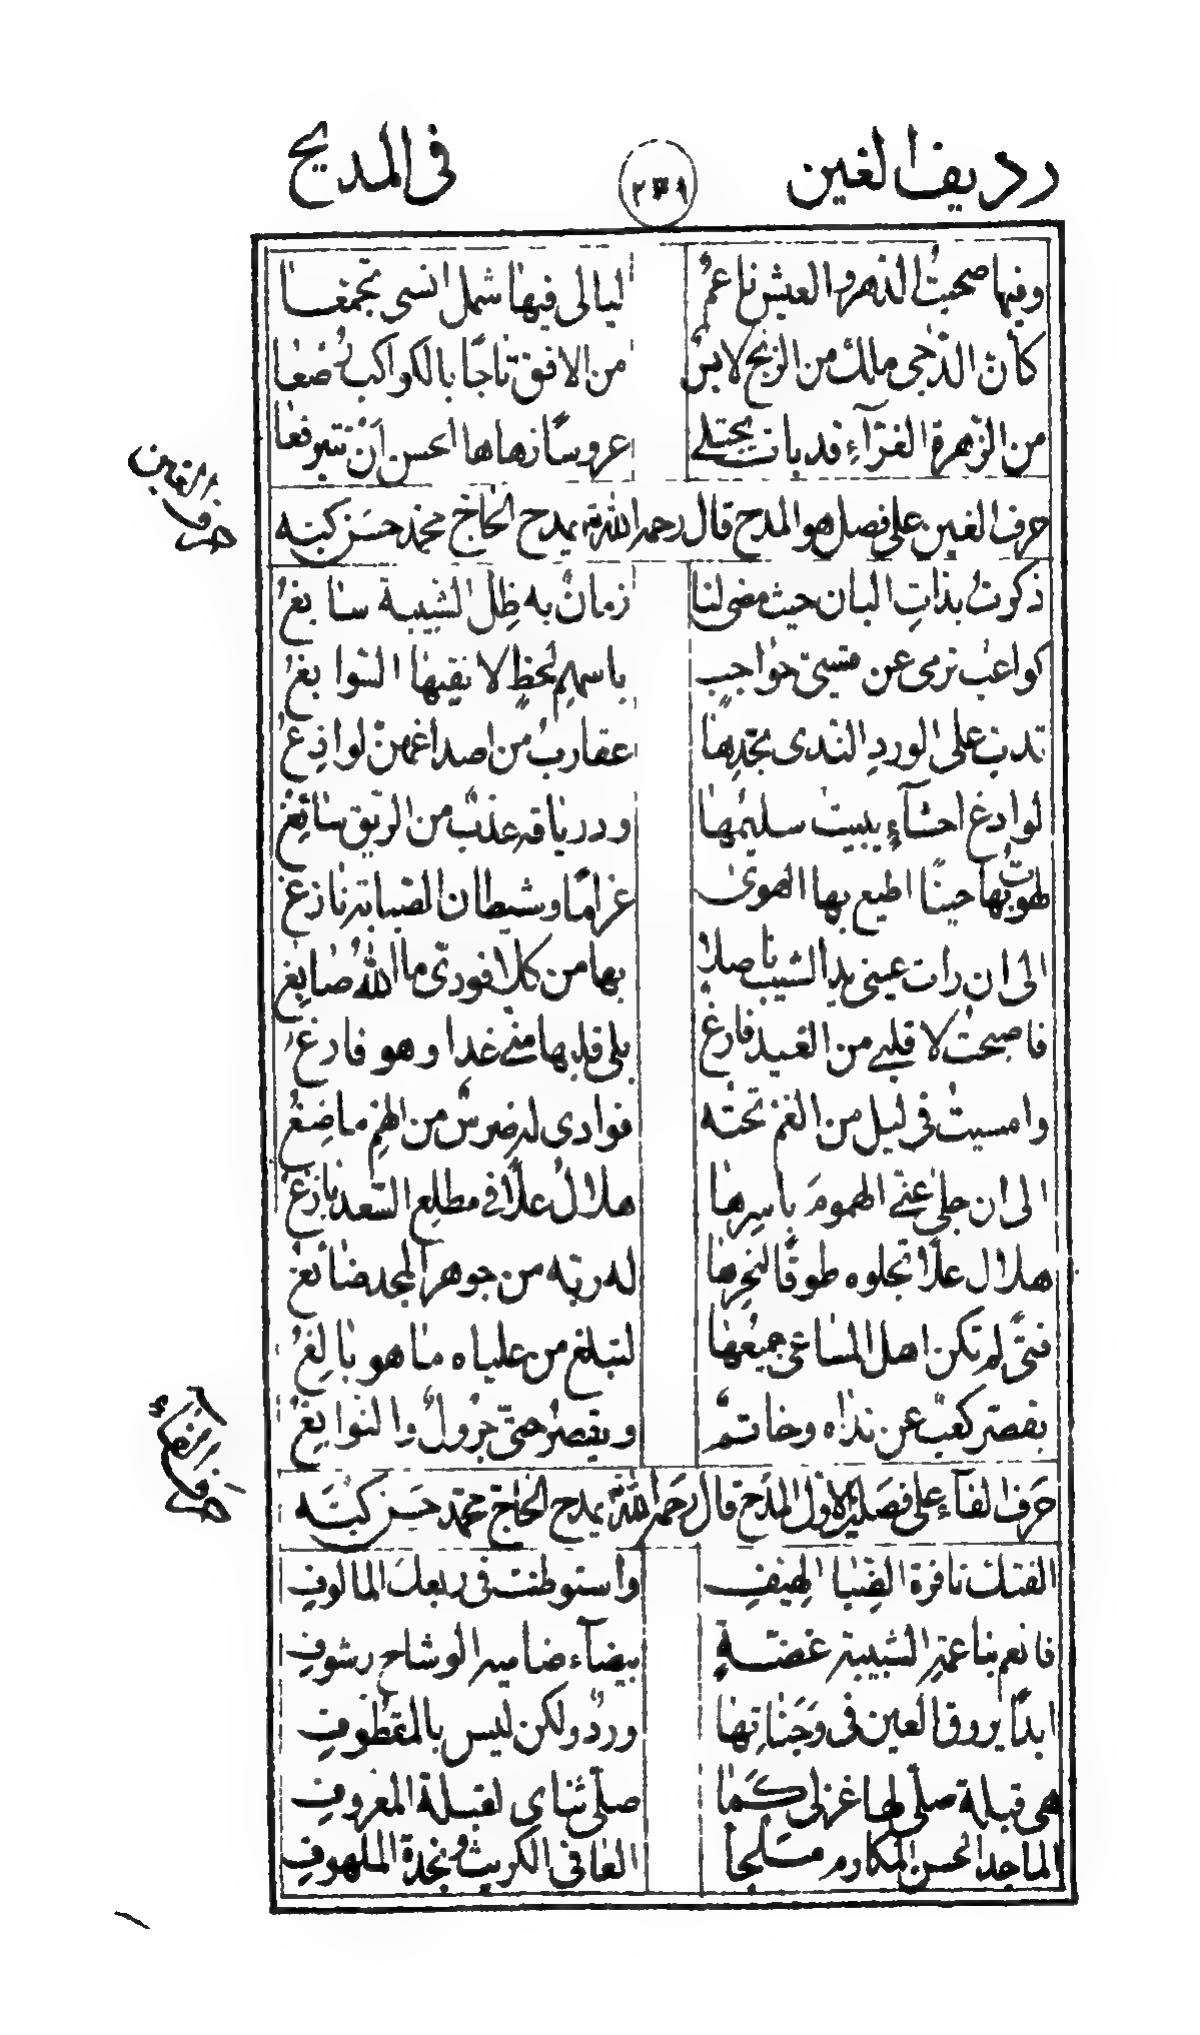 رديف الغين ٢٣٩ في المديح
وفيها صحبتُ الدهر والعيش ناعمٌ ليالي فيها شمل انسي تجمّعا
كأنّ الدّجى مالك من الزنج لابسٌ من الافق تاجًا بالكواكب رُصّعا
من الزّهرة الغرّآءِ قد بات يجتلى عروسًا زهاها الحسن أنْ تتبرقعا
حرف الغين
حرف الغين على فصل هو المدح قال رحمه الله يمدح الحاج محمد حسن كبّه
ذكرتُ بذاتِ البان حيث مضى لنا زمانٌ به ظِلّ الشبيبة سابغُ
كواعبُ ترمى عن قسيّ حواجبٍ باسهمِ لحظٍ لا تقيها السّوابغُ
تدبّ على الوردِ الندى بخدِّها عقاربُ من اصداغهنّ لوادِغُ
لوادغ احشآءٍ يبيت سليمُها ودرياقه عذبٌ من الرّيق سائغُ
طهوتُ بها حينًا اطيع بها الهوىٰ غرامًا وشيطان الصّبابة نازغُ
الى ان رات عينى يد الشيب ناصلا بها من كلا فودىّ ما اللهُ صابغُ
فاصبحتُ لا قلبي من الغيد فارغٌ بلى قلبها منّي غدا وهو فارغُ
وامسيتُ في ليل من الغمّ تحته فوادى له ضرسٌ من الهمّ ماضِغُ
الى ان جلى عنّي الهمومَ باسرِها هلالُ علًا في مطلع السّعد بازغُ
هلال علًا تجلوه طوقًا لنحرِها له ربّه من جوهر المجد صائغُ
فتىً لم تكن اهل المساعى جميعُها لتبلغ من علياه ما هو بالغُ
يقصّر كعبٌ عن نداه وحاتمٌ ويقصرُ حتّى جرولٌ والنوابغُ
حرف الفآء
حرف الفآء على فصلين الاول المدح قال رحمه الله يمدح الحاج محمد حسن كبّه
الفتك نافرة الظّبا الهيفِ واستوطنت في ربعك المالوفِ
فانعم بناعمة الشبيبة غضّةٍ بيضآء ضامية الوشاح رشوفِ
ابدًا يروق العين في وَجَناتِها وردٌ ولكن ليس بالمقطوفِ
هى قبلة صلّى لها غزلى كما صلّى ثناى لقبلة المعروفِ
الماجد الحسن المكارم مسلجأ العافى الكريث ونجدة الملهوفِ